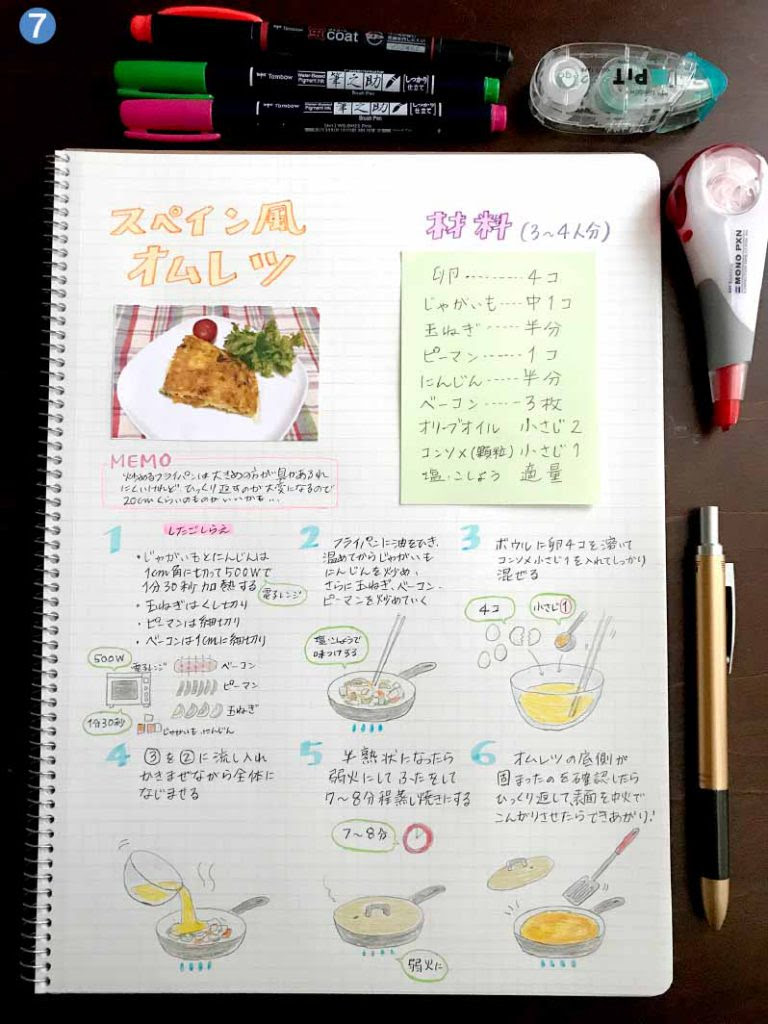 7
coat
Tombow
Water-Based Pigment Ink
筆之助
しっかり仕立て
Brush Pen
Tombow
Water-Based Pigment Ink
筆之助
しっかり仕立て
Brush Pen
PIT
MONO PXN
スペイン風
オムレツ
材料 (3〜4人分)
卵‥‥‥‥4コ
じゃがいも‥‥中1コ
玉ねぎ‥‥‥半分
ピーマン‥‥‥1コ
にんじん‥‥‥半分
ベーコン‥‥‥3枚
オリーブオイル 小さじ2
コンソメ(顆粒) 小さじ1
塩・こしょう 適量
MEMO
炒めるフライパンは大きめの方が具があふれ
にくいけれど、ひっくり返すのが大変になるので
20cmくらいのものがいいかも…
1 したごしらえ
・じゃがいもとにんじんは
1cm角に切って500Wで
1分30秒加熱する
電子レンジ
・玉ねぎはくし切り
・ピーマンは細切り
・ベーコンは1cmに細切り
500W
電子レンジ
1分30秒
ベーコン
ピーマン
玉ねぎ
じゃがいも にんじん
2 フライパンに油をひき、
温めてからじゃがいも
にんじんを炒め、
さらに玉ねぎ、ベーコン・
ピーマンを炒めていく
塩・こしょうで
味つけする
3 ボウルに卵4コを溶いて
コンソメ小さじ1を入れてしっかり
混ぜる
4コ
小さじ1
4 ③を②に流し入れ
かきまぜながら全体に
なじませる
5 半熟状になったら
弱火にしてふたをして
7〜8分程蒸し焼きにする
7〜8分
弱火に
6 オムレツの底側が
固まったのを確認したら
ひっくり返して、表面を中火で
こんがりさせたらできあがり!